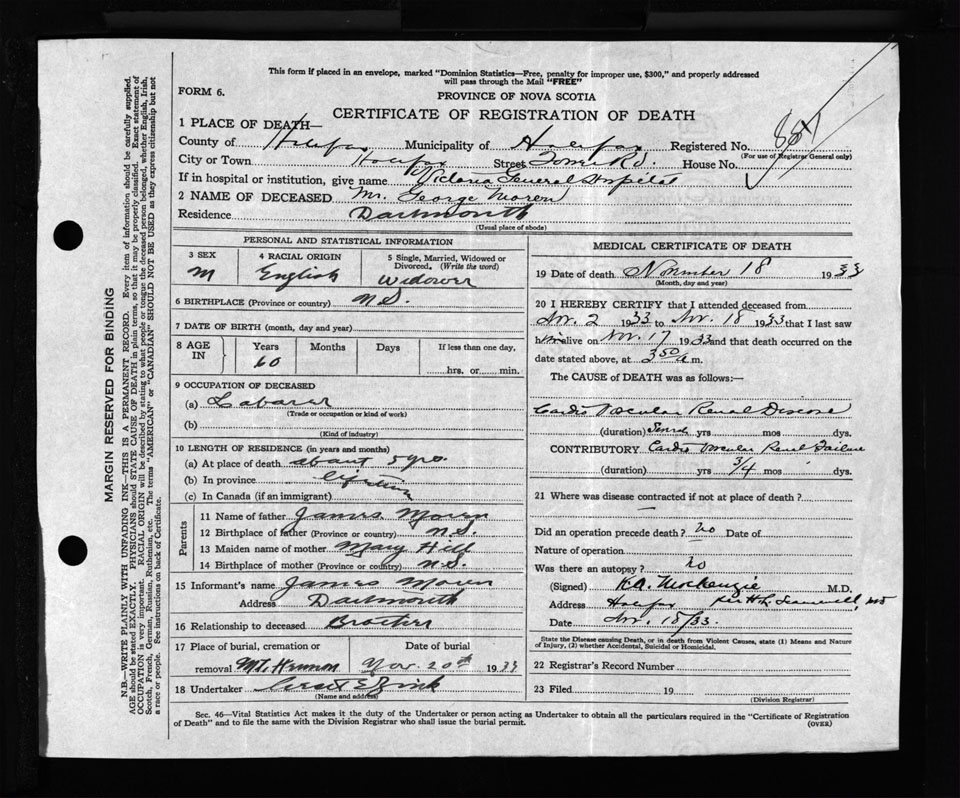 This form if placed in an envelope, marked "Dominion Statistics—Free, penalty for improper use, $300," and properly addressed
will pass through the Mail "FREE"
FORM 6.
PROVINCE OF NOVA SCOTIA
CERTIFICATE OF REGISTRATION OF DEATH
1 PLACE OF DEATH—
County of Halifax Municipality of Halifax Registered No.
(For use of Registrar General only)
City or Town Halifax Street House No.
If in hospital or institution, give name Victoria General Hospital
2 NAME OF DECEASED Mr. George Moren
Residence Dartmouth
(Usual place of abode)
PERSONAL AND STATISTICAL INFORMATION
3 SEX 4 RACIAL ORIGIN 5 Single, Married, Widowed or Divorced. (Write the word)
M English Widower
6 BIRTHPLACE (Province or country) N.S.
7 DATE OF BIRTH (month, day and year)
8 AGE IN Years Months Days If less than one day,
60 hrs. or min.
9 OCCUPATION OF DECEASED
(a) Laborer
(Trade or occupation or kind of work)
(b)
(Kind of Industry)
10 LENGTH OF RESIDENCE (in years and months)
(a) At place of death about 5 yrs.
(b) In province lifetime
(c) In Canada (if an immigrant)
Parents
11 Name of father James Moren
12 Birthplace of father (Province or country) N.S.
13 Maiden name of mother Mary Hill
14 Birthplace of mother (Province or country) N.S.
15 Informant's name James Moren
Address Dartmouth
16 Relationship to deceased Brother
17 Place of burial, cremation or removal Mt. Hermon
Date of burial Nov. 20th 1933
18 Undertaker Zink
(Name and address)
MEDICAL CERTIFICATE OF DEATH
19 Date of death November 18 1933
(Month, day and year)
20 I HEREBY CERTIFY that I attended deceased from
Nov. 2 1933 to Nov. 18 1933 that I last saw
him alive on Nov. 17 1933 and that death occurred on the
date stated above, at 3 50 a.m.
The CAUSE of DEATH was as follows:—
Cardio Vascular Renal Disease
(duration) Several yrs mos dys.
CONTRIBUTORY Cardio Vascular Renal Failure
(duration) yrs 3/4 mos dys.
21 Where was disease contracted if not at place of death?
Did an operation precede death? no Date of
Nature of operation
Was there an autopsy? no
(Signed) K.A. MacKenzie M.D.
Address Halifax per H.L. MD
Date Nov. 18/33.
State the Disease causing Death, or in death from Violent Causes, state (1) Means and Nature
of Injury, (2) whether Accidental, Suicidal or Homicidal.
22 Registrar's Record Number
23 Filed 19
(Division Registrar)
Sec. 46—Vital Statistics Act makes it the duty of the Undertaker or person acting as Undertaker to obtain all the particulars required in the "Certificate of Registration
of Death" and to file the same with the Division Registrar who shall issue the burial permit.
(OVER)
MARGIN RESERVED FOR BINDING
N.B.—WRITE PLAINLY WITH UNFADING INK—THIS IS A PERMANENT RECORD. Every item of information should be carefully supplied.
AGE should be stated EXACTLY. PHYSICIANS should STATE CAUSE OF DEATH in plain terms, so that it may be properly classified. Exact statement of
OCCUPATION is very important. RACIAL ORIGIN will be described by stating to what people or tongue the deceased person belonged, whether English, Irish,
Scotch, French, German, Russian, Ruthenian, etc. The terms "AMERICAN" or "CANADIAN" SHOULD NOT BE USED as they express citizenship but not
a race or people. See instructions on back of Certificate.